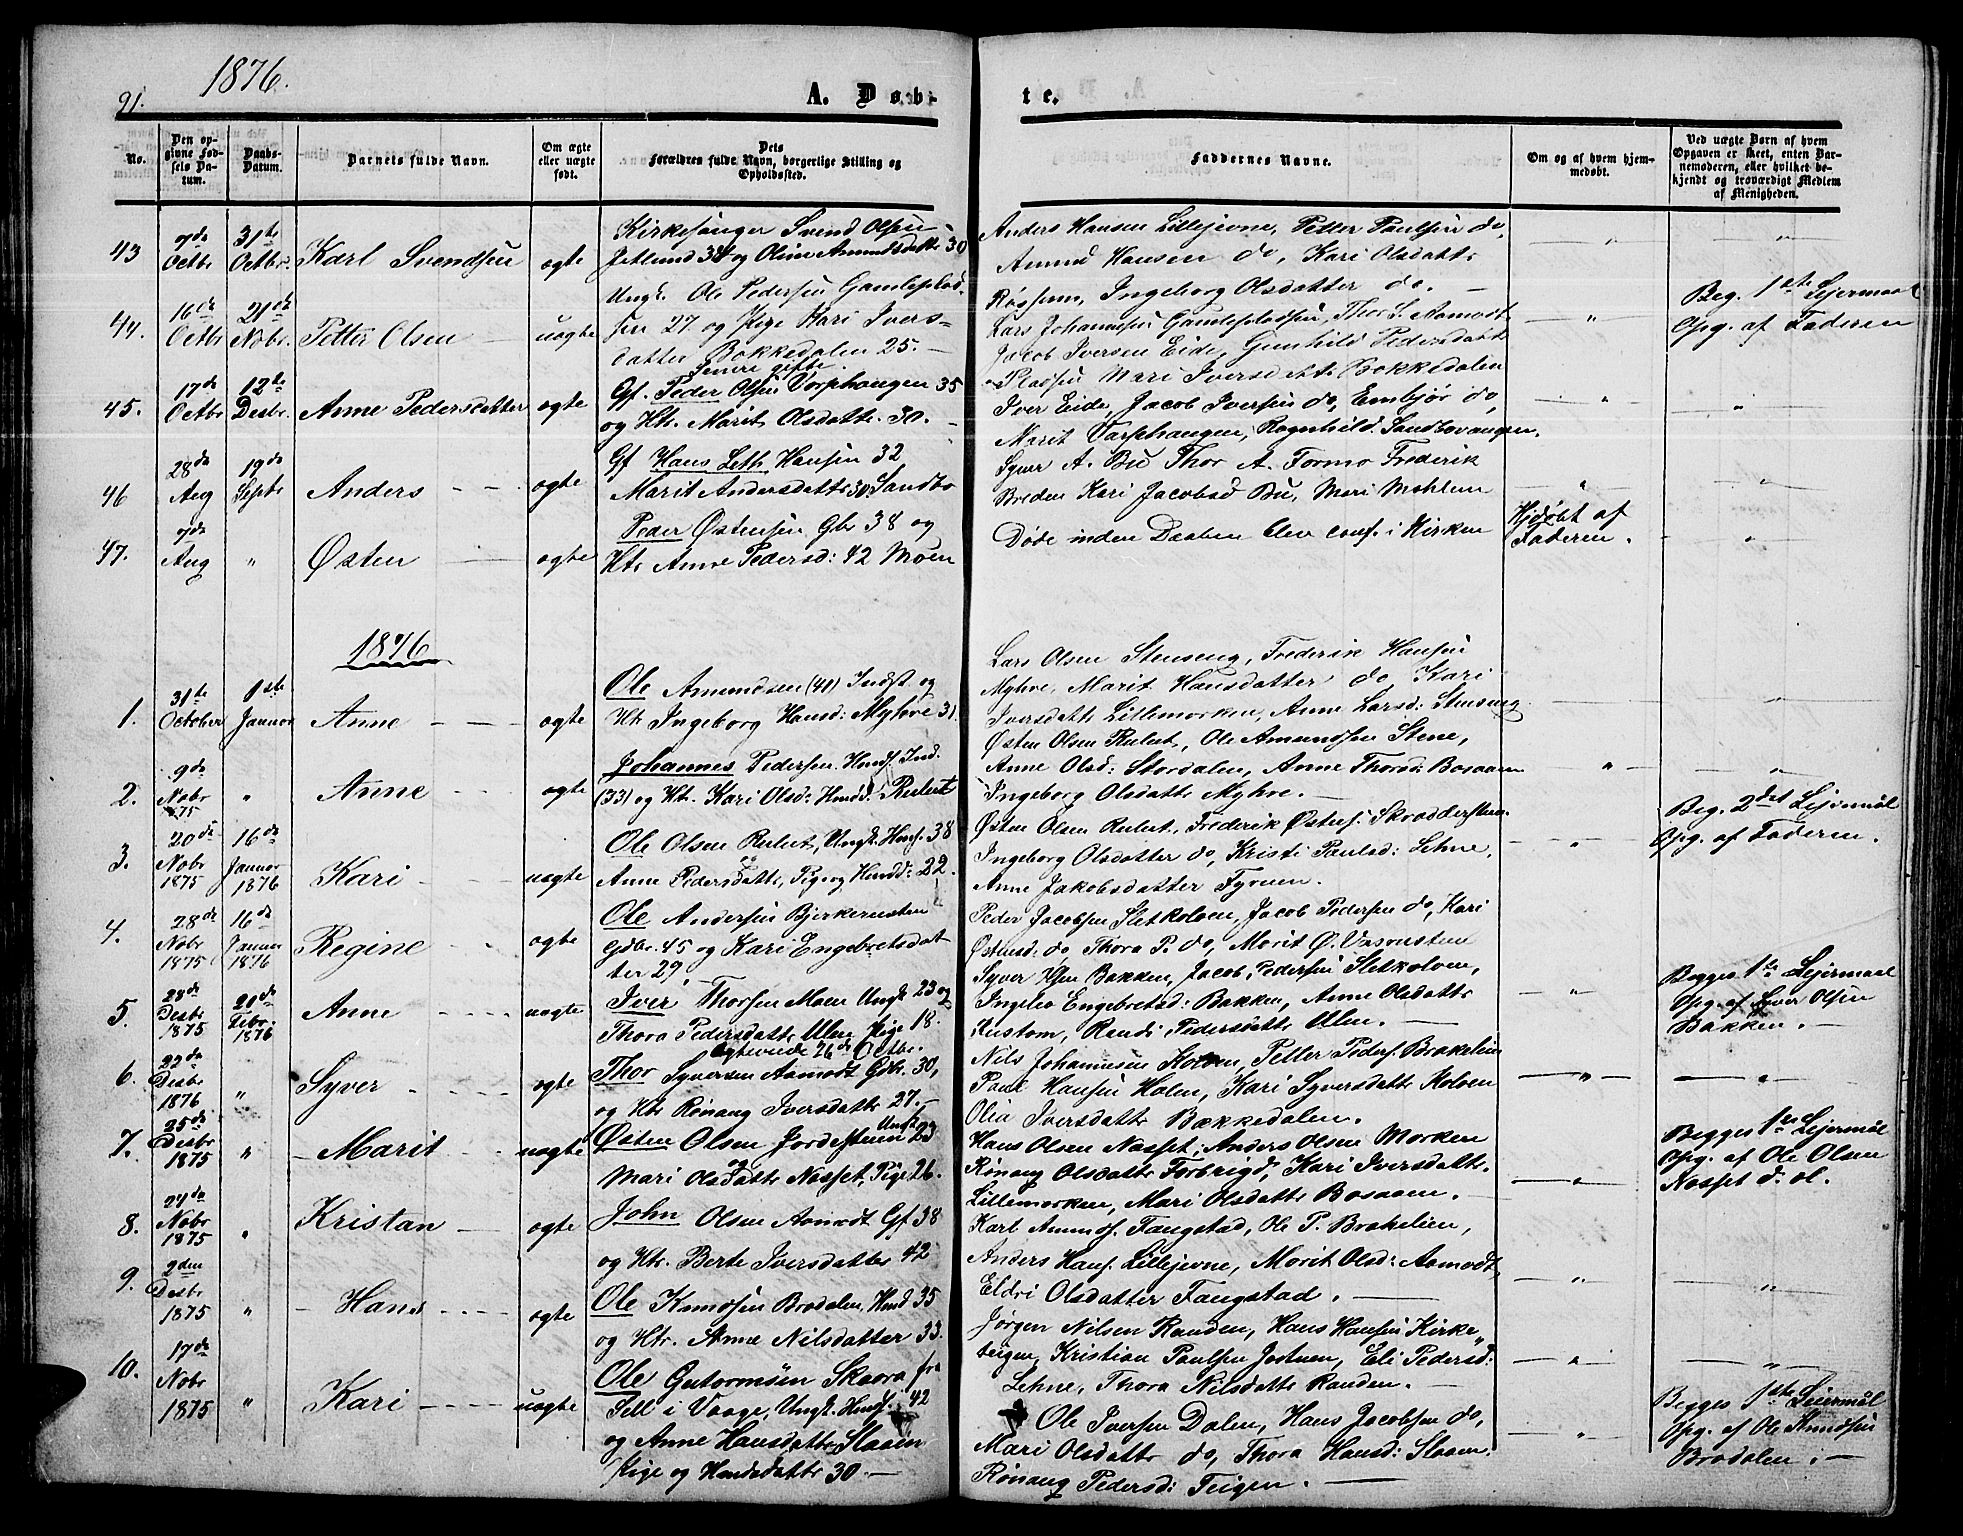 91.
1876.
A. Døb-
te.
No.
Den op-
givne Fød-
sels Da-
tum.
Daabs-
Datum.
Barnets fulde Navn.
Om ægte
eller uægte
født.
Dets
Forældres fulde Navn, borgerlige Stilling og
Opholdssted.
Faddernes Navne.
Om og af hvem hjem-
medøbt.
Ved uægte Børn af hvem
Opgaven er skeet, enten Bar-
nemoderen, eller hvilket be-
kjendt og troværdigt Medlem
af Menigheden.
43
7de
Octbr
31te
Octbr.
Karl Svendsen
ægte
Kirkesanger Svend Olsen
Jetlund 34 og Oline Amundsdatte 30
Anders Hansen Lillejevne, Petter Paulsen do,
Amund Hansen do, Kari Olsdatte
Røssum, Ingeborg Olsdatter do.
44.
16de
Octbr
21de
Nobr.
Petter Olsen
uægte
Ungk. Ole Pedersen Gamleplad-
sen 27 og Pige Kari Ivers-
datter Bækkedalen 25.
Senere gifte.
Lars Johannesen Gamlepladsen, Thor S. Aamodt
Jacob Iversen Eide, Gunhild Pedersdatte
Pladsen Mari Iversdatte Bækkedalen
Beg. 1ste Lejermaal
Opg. af Faderen
45.
17de
Octbr
12te
Desbr.
Anne Pedersdatter
ægte
Gf. Peder Olsen Vorphaugen 35
og Htr. Marit Olsdatte. 30.
Iver Eide, Jacob Iversen do, Embjør do,
Marit Varphaugen, Ragnhild Sandbovangen.
46
28de
Aug
19de
Septbr
Anders
ægte
Gf Hans Leth Hansen 32
Marit Andersdatte 30 Sandbo
Syver A. Bu Thor A. Formo Frederik
Breden Kari Jacobsd Bu, Mari Mæhlum
47.
7de
Aug
"
Østen
ægte
Peder Østensen Gbr 38 og
Htr Anne Pedersd: 42 Moen
Døde inden Daaben blev conf. i Kirken
Hjdøbt af
Faderen.
1876
1.
31te
October
1ste
Januar
Anne
ægte
Ole Amundsen (41) Indst og
Htr Ingeborg Hansd: Myhre 31.
Lars Olsen Stenseng, Frederik Hansen
Myhre, Marit Hansdatter do Kari
Iversdatte Lillemorken, Anne Larsd: Stenseng
2.
9de
Nobr
1875
"
Anne
ægte
Johannes Pedersen Hmdf. Ind.
(33) og Htr. Kari Olsd: Hmdd: Rulut
Østen Olsen Rulut, Ole Amundsen Stene,
Anne Olsd: Stordalen, Anne Thorsd: Bosaaen
Ingeborg Olsdatte Myhre.
3.
20de
Nobr
1875
16de
Januar
1876
Kari
uægte
Ole Olsen Rulut, Ungk. Hmsf. 38
og
Anne Pedersdatte, Pige og Hmdd: 22.
Østen Olsen Rulut, Frederik Østers. Skrædderstuen
Ingeborg Olsdatter do, Kristi Paulsd: Lehne,
Anne Jakobsdatter Fyruen.
Beg. 2det Lejermaal
Opg. af Faderen.
4.
28de
Nobr
1875
16de
Januar
1876
Regine
ægte
Ole Andersen Bjerkernsten
Gdbr. 45 og Kari Engebretsdat
ter 29.
Peder Jacobsen Sletkolven, Jacob Pedersen do, Kari
Østensd: do, Thora P. do, Marit Ø. Ursonsten
5.
28de
Desbr
1875
20de
Febr.
1876
Anne
uægte
Iver Thorsen Moen Ungk 23 og
Thora Pedersdatte Ulen Pige 18.
Ægteviede 26de Octbr.
Syver Olsen Bakken, Jacob Pedersen Sletkolven,
Ingeleiv Engebretsd: Bakken, Anne Olsdatte
Rustom, Randi Pedersdatte Ulen.
Begges 1ste Lejermaal
Opg. af Syver Olsen
Bakken.
6.
22de
Desbr
1876
"
Syver
ægte
Thor Syversen Aamodt Gbr. 30,
og Htr Rønaug Iversdatte 27.
Nils Johannesen Kolven, Petter Peders. Brækelien
Paul Hansen Holen, Kari Syversdatte Kolven
Olia Iversdatte Bækkedalen.
7.
25de
Desbr
1875
"
Marit
uægte
Østen Olsen Jordestuen Ungk 23
og
Mari Olsdatte Næsset, Pige 26.
Hans Olsen Næsset, Anders Olsen Morken
Rønaug Olsdatte Forbrigd, Kari Iversdatte.
Lillemorken, Mari Olsdatte Bosaaen.
Begges 1ste Lejermaal
Opg. af Ole Olsen
Næsset d. æl.
8.
24de
Nobr
1875
"
Kristan
ægte
John Olsen Aamodt Gf 38
og Htr. Berte Iversdatter 42
Karl Amunds. Faugstad, Ole P. Brækelien,
Anders Hans. Lillejevne, Marit Olsd: Aamodt,
Eldri Olsdatter Faugstad.
9.
2den
Desbr
1875
"
Hans
ægte
Ole Knudsen Brødalen, Hmd 35
og Htr. Anne Nilsdatter 33.
Jørgen Nilsen Randen, Hans Hansen Kirke-
teigen, Kristian Paulsen Jostuen, Eli Pedersd:
Lehne, Thora Nilsdatte Randen.
10.
17de
Nobr
1875
"
Kari
uægte
Ole Gutormsen Skaara fra
Sell i Vaage, Ungk. Hmsf. 42
og Anne Hansdatte Slaaen
Pige og Hmdsdatte 30.
Ole Iversen Dalen, Hans Jacobsen do,
Mari Olsdatte do, Thora Hansd: Slaaen.
Rønaug Pedersd: Teigen.
Begges 1ste Lejermaal
Opg. af Ole Knudsen
Brødalen.